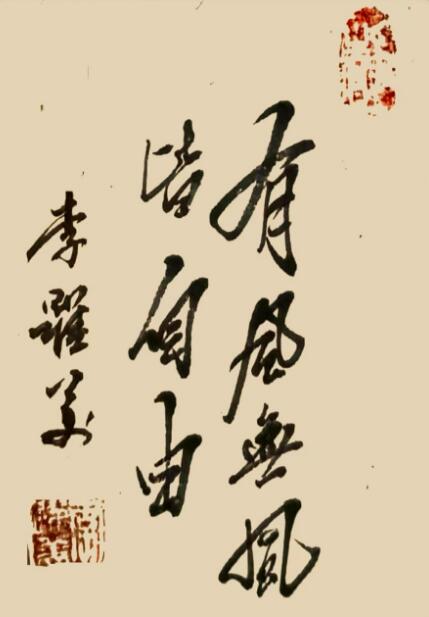 有風無風
皆自由
李